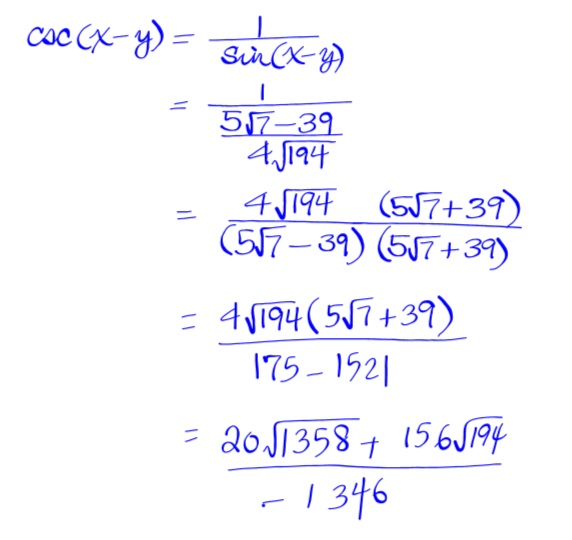 csc(x-y) = 1/sin(x-y)
= 1/((5√7-39)/(4√194))
= (4√194 (5√7+39))/((5√7-39)(5√7+39))
= (4√194(5√7+39))/(175-1521)
= (20√1358 + 156√194)/(-1346)